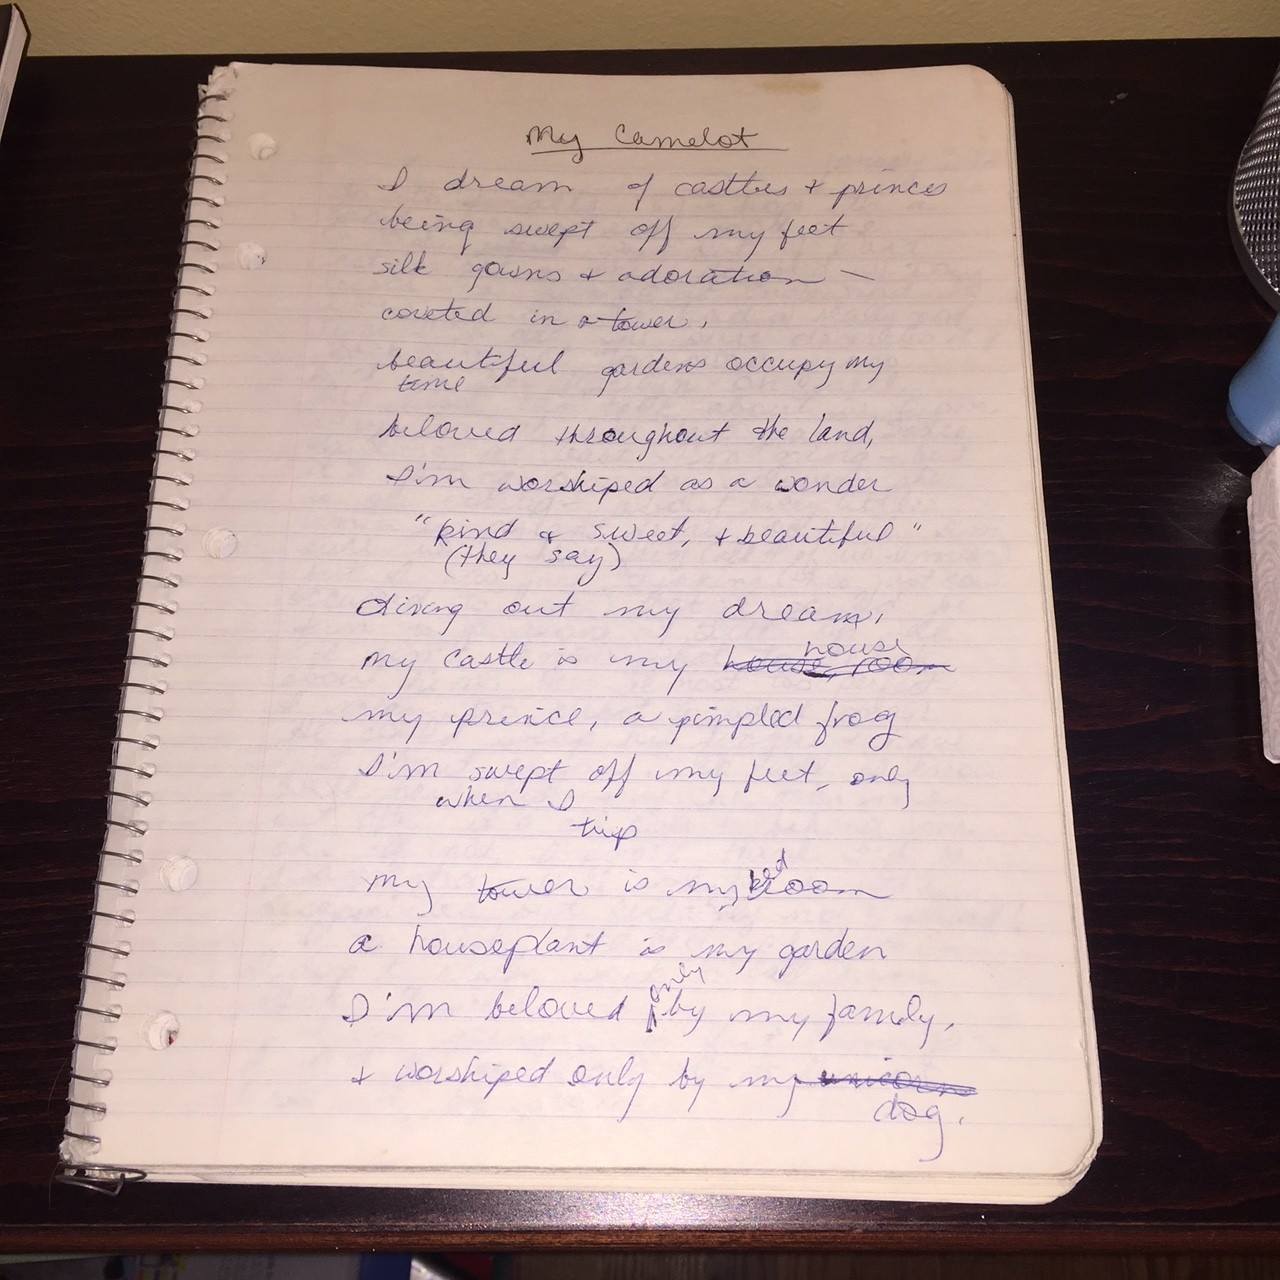 My Camelot
I dream of castles + princes
being swept off my feet
silk gowns + adoration –
coveted in a tower,
beautiful gardens occupy my
time
beloved throughout the land,
I'm worshiped as a wonder
"kind & sweet, + beautiful"
(they say)
living out my dream,
my castle is my house, room house
my prince, a pimpled frog
I'm swept off my feet, only
when I
trip
my tower is my bedroom
a houseplant is my garden
I'm beloved only by my family,
+ worshiped only by my unicorn
dog.